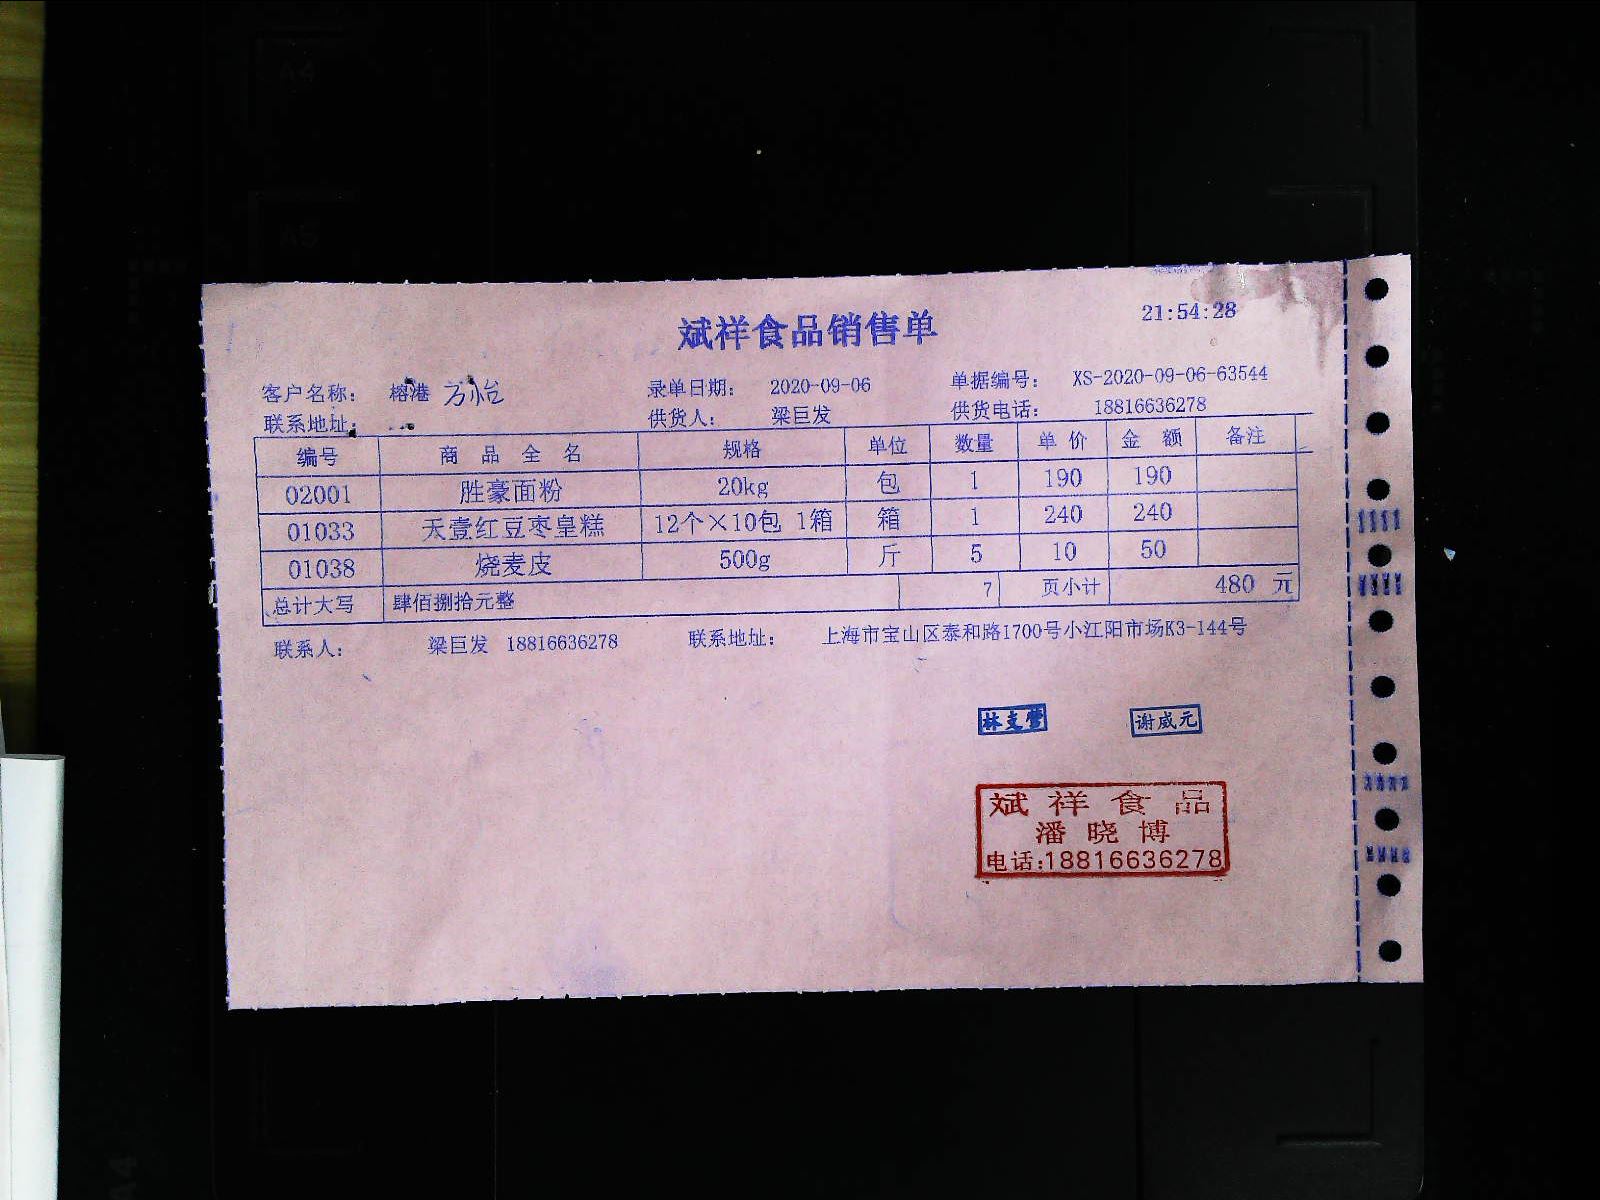 21:54:28
斌祥食品销售单
客户名称： 榕港 录单日期： 2020-09-06 单据编号： XS-2020-09-06-63544
联系地址： 供货人： 梁巨发 供货电话： 18816636278
编号 商 品 全 名 规格 单位 数量 单价 金 额 备注
02001 胜豪面粉 20kg 包 1 190 190
01033 天壹红豆枣皇糕 12个×10包 1箱 箱 1 240 240
01038 烧麦皮 500g 斤 5 10 50
总计大写 肆佰捌拾元整 7 页小计 480 元
联系人： 梁巨发 18816636278 联系地址： 上海市宝山区泰和路1700号小江阳市场K3-144号
谢威元
斌祥食品
潘晓博
电话:18816636278